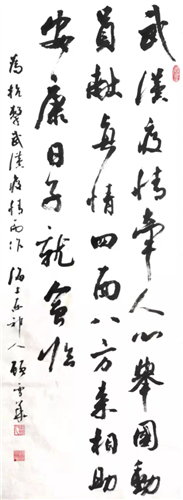 武漢疫情牽人心舉國動
員獻真情四面八方來相助
安康日子就會臨
為抗擊武漢疫情而作